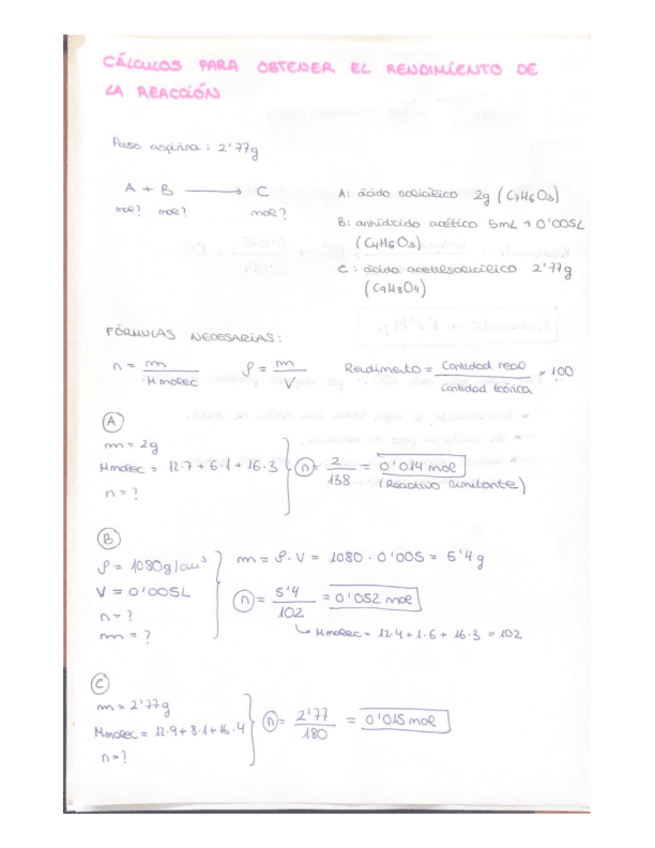 CÁLCULOS PARA OBTENER EL RENDIMIENTO DE
LA REACCIÓN
Peso aspirina: 2'77g
A + B → C
mol? mol? mol?
A: ácido salicílico 2g (C7H6O3)
B: anhídrido acético 5mL → 0'005L
(C4H6O3)
C: ácido acetilsalicílico 2'77g
(C9H8O4)
FÓRMULAS NECESARIAS:
n = m / Mmolec
ρ = m / V
Rendimiento = Cantidad real / Cantidad teórica × 100
A
m = 2g
Mmolec = 12·7 + 6·1 + 16·3
n = ?
n = 2 / 138 = 0'014 mol
(Reactivo limitante)
B
ρ = 1080g/cm³
V = 0'005L
n = ?
m = ?
m = ρ·V = 1080 · 0'005 = 5'4 g
n = 5'4 / 102 = 0'052 mol
↳ Mmolec = 12·4 + 1·6 + 16·3 = 102
C
m = 2'77g
Mmolec = 12·9 + 8·1 + 16·4
n = ?
n = 2'77 / 180 = 0'015 mol